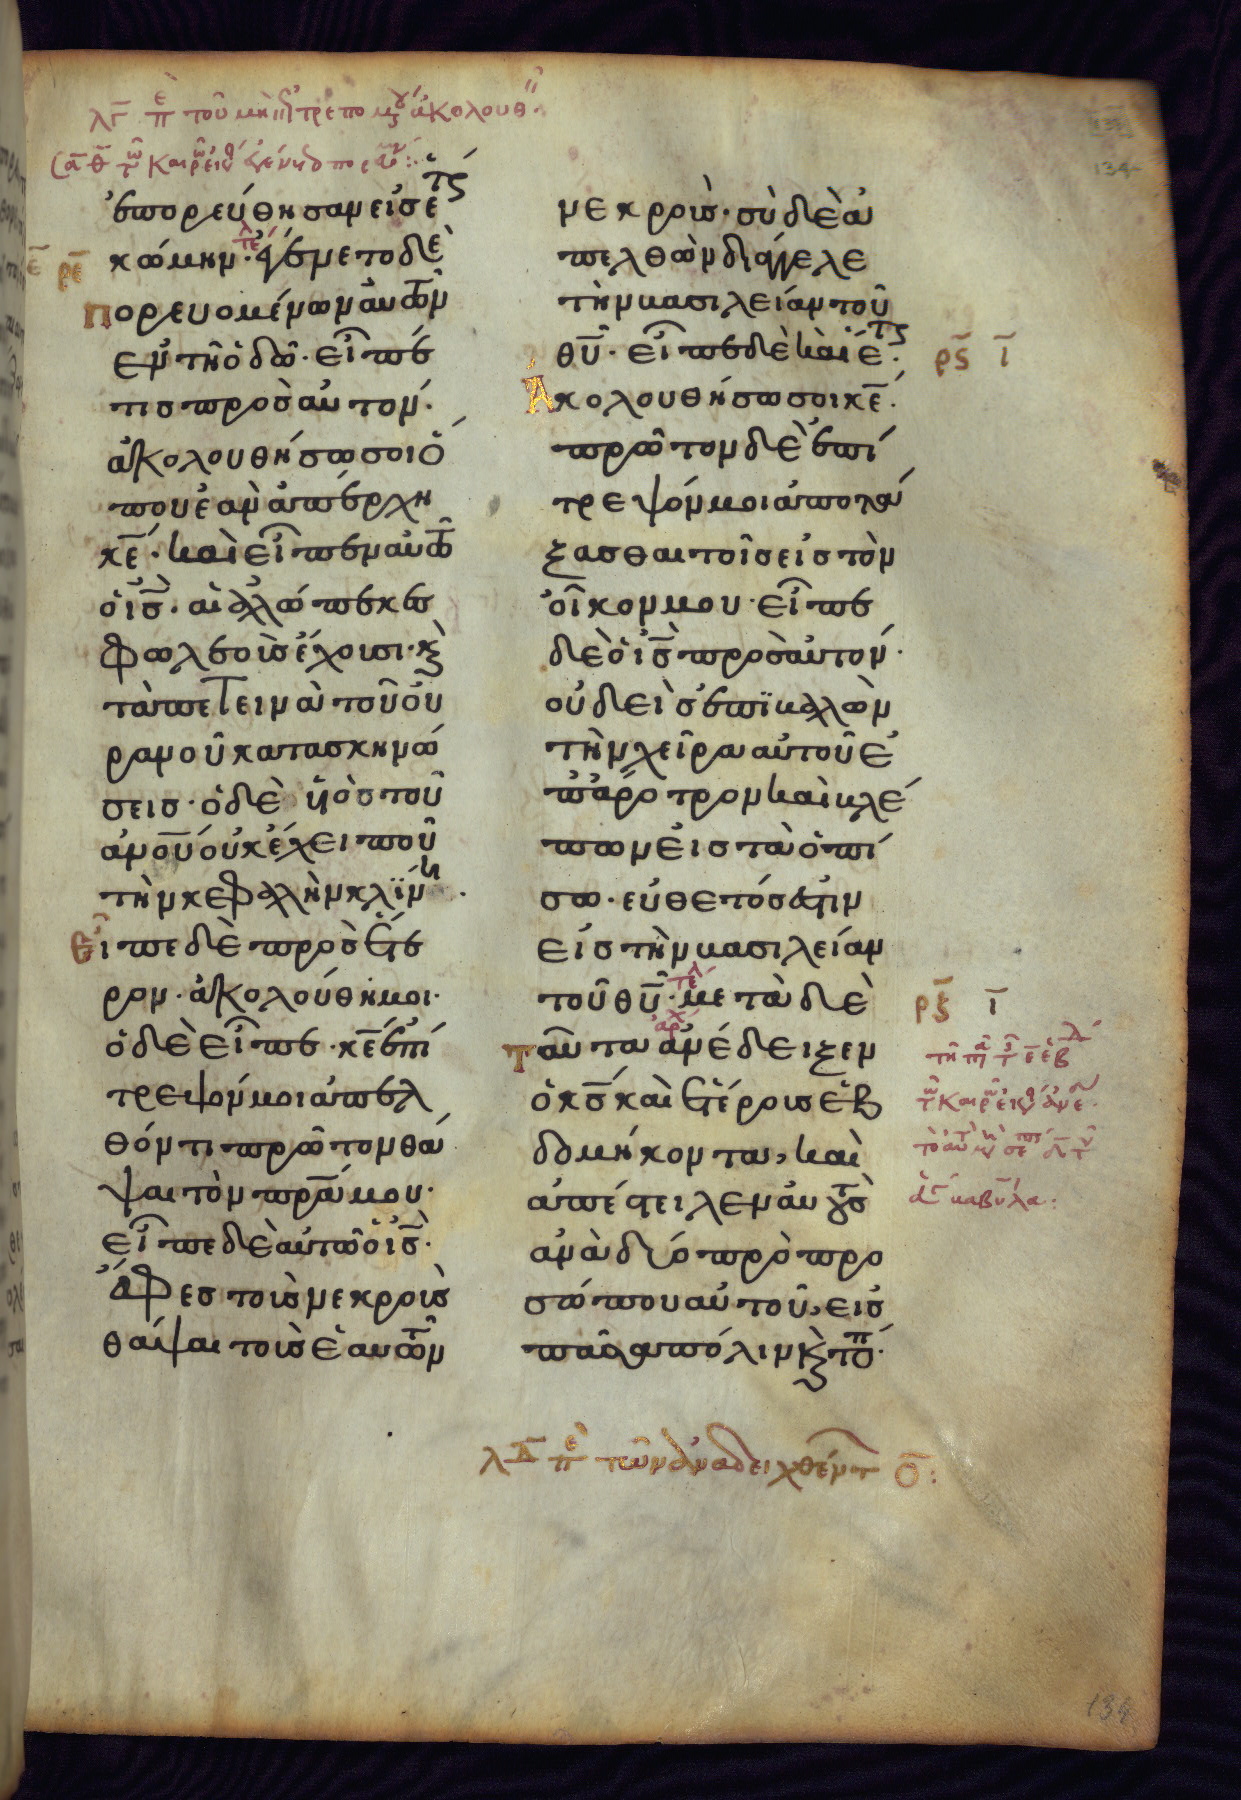 λγ π̅ὲ τοῦ μὴ ἐπιτρεπομ ἀκολουθ
ἐπορεύθησαν εἰς ἑτς
κώμην· τελ ἐγένετο δὲ
ε̅ ρε̅
πορευομένων αὐτῶν
ἐν τῆ ὁδῶ· εἶπέ
τις πρὸς αὐτόν·
ἀκολουθήσω σοι ὅ
που ἐὰν ἀπέρχη
κ̅ε̅· καὶ εἶπεν αὐτῶ
ὁ ι̅ς̅· αἱ ἀλώπεκες
φωλεοὺς ἔχουσι· κ̀
τὰ πετεινὰ τοῦ οὐ
ρανοῦ κατασκηνώ
σεις· ὁ δὲ υἱὸς τοῦ
α̅ν̅ο̅υ̅ οὐκ ἔχει ποῦ
τὴν κεφαλὴν κλίνη·
εἶπε δὲ πρὸς ἕτε
ρον· ἀκολούθει μοι·
ὁ δὲ εἶπε· κ̅ε̅ ἐπί
τρεψόν μοι ἀπελ
θόντι πρῶτον θά
ψαι τὸν π̅ρ̅α̅ μου·
εἶπε δὲ αὐτῶ ὁ ι̅ς̅·
ἄφες τοὺς νεκροὺς
θάψαι τοὺς ἑαυτῶν
νεκρούς· σὺ δὲ ἀ
πελθὼν διάγγελε
τὴν βασιλείαν τοῦ
θ̅υ̅· εἶπε δὲ καὶ ἕτς·
ρϛ̅ ι̅
ἀκολουθήσω σοι κ̅ε̅·
πρῶτον δὲ ἐπί
τρεψόν μοι ἀποτά
ξασθαι τοῖς εἰς τὸν
οἶκον μου· εἶπε
δὲ ὁ ι̅ς̅ πρὸς αὐτόν·
οὐδεὶς ἐπϊβαλὼν
τὴν χεῖρα αὐτοῦ ἐ
π ἄροτρον καὶ βλέ
πων εἰς τὰ ὀπί
σω· εὔθετός ἐστιν
εἰς τὴν βασιλείαν
τοῦ θ̅υ̅· τελ μετὰ δὲ
ρξ̅ ι̅
ταῦτα αρχ ἀνέδειξεν
ὁ κ̅ς̅ καὶ ἑτέρους ἑβ
δομήκοντα, καὶ
ἀπέστειλεν αὐτοὺς
ἀνὰ δύο πρὸ προ
σώπου αὐτοῦ, εἰς
πᾶσαν πόλιν κ̀ τόπ·
λδ̅ π̅ὲ τῶν ἀναδειχθέντ ο̅:
134
134